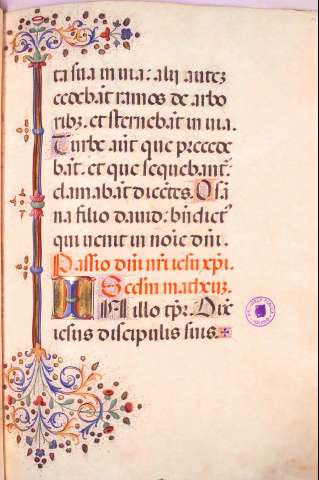 ta sua in uia: alii autez
cedebāt ramos de arbo
ribz. et sternebāt in uia.
Turbe aūt que precede
bāt. et que sequebant̄.
clamabāt dicētes. Osā
na filio dauid: bn̄dict'
qui uenit in noīe dn̄i.
Passio dn̄i nr̄i iesu xp̄i.
Secd̄m matheuz.
IN illo tp̄r. Dix̄
iesus discipulis suis.